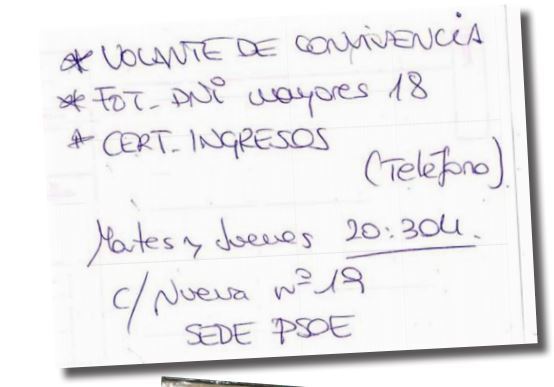 * VOLANTE DE CONVIVENCIA
* FOT. DNI mayores 18
* CERT. INGRESOS
(Teléfono)
Martes y Jueves 20:30H.
C/ Nueva nº 19
SEDE PSOE